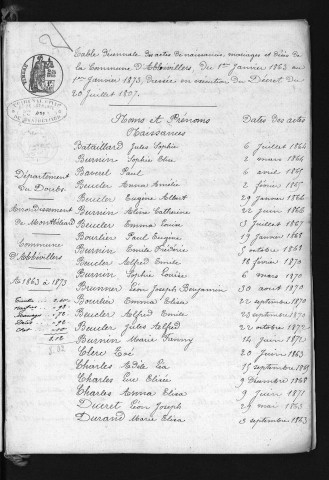 Table décennale des actes de naissances, mariages et décès de
la Commune d'Abbévillers Du 1er Janvier 1863 au
1er Janvier 1873, Dressée en exécution du Décret du
20 Juillet 1807.
Noms et Prénoms
Dates des actes
Naissances
Bataillard Jules Sophie 6 Juillet 1864
Burnin Sophie Elise 2 mars 1864
Paul 6 avril 1865
Beucler Emma Amélie 2 février 1865
Beucler Eugène Albert 29 Janvier 1866
Burnin Catherine 22 Juin 1866
Beucler Emma Louise 3 Juillet 1867
Bourlier Paul Eugène 19 Janvier 1868
Burnin Emile Frédéric 5 octobre 1868
Beucler Alfred Emile 18 février 1870
Burnin Sophie Louise 6 mars 1870
Brunner Léon Joseph Benjamin 30 août 1870
Bourlier Emma Elisa 22 septembre 1870
Beucler Alfred Emile 23 septembre 1870
Beucler Jules Alfred 22 octobre 1872
Burnin Marie Fanny 14 Juin 1872
Clerc 20 Juin 1863
Charles Adèle Léa 15 septembre 1869
Charles Elisée 9 Décembre 1868
Charles Anna Elisa 9 Juin 1871
Ducret Léon Joseph 29 mai 1863
Durand Marie Elisa 3 septembre 1863
Département
du Doubs
Arrondissement
de Montbéliard
Commune
d'Abbévillers
De 1863 à 1873